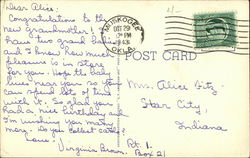 Dear Alice:
Congratulations to the
new Grandmother! I
have two grand
but I know how much
pleasure is in store
for you. Hope the baby
lives near you so you
can spend lot of time
with it. So glad you
had a nice birthday and
I'm wishing you many
more. Do you collect
Love:
Virginia Brown
MUSKOGEE
OCT 29
PM
OKLA.
POST CARD
Mrs. Alice Sitz
Star City,
Indiana
Rt. 1.
Box 21